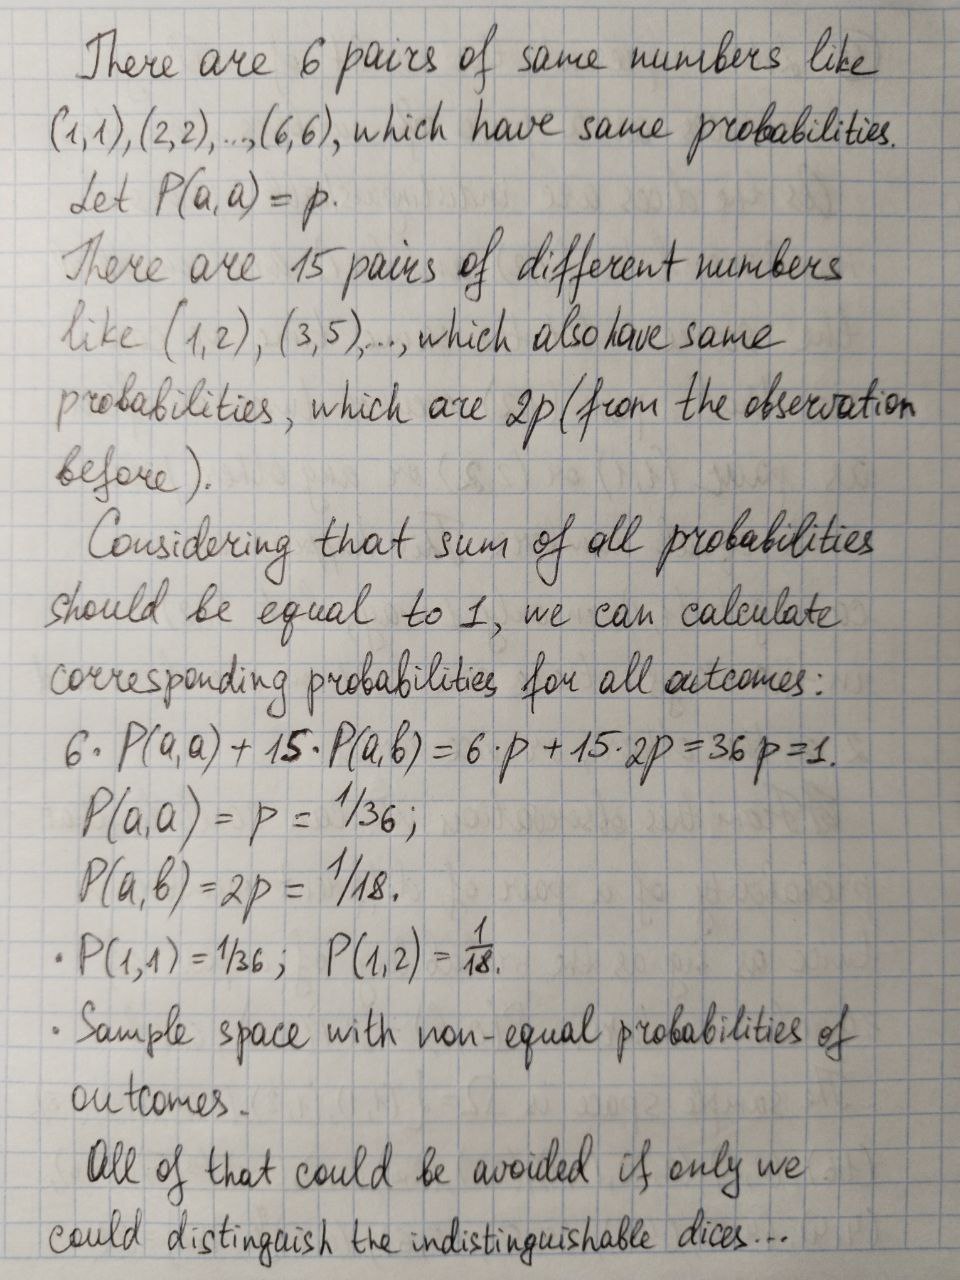 There are 6 pairs of same numbers like
(1,1),(2,2),...,(6,6), which have same probabilities.
Let P(a,a) = p.
There are 15 pairs of different numbers
like (1,2), (3,5),..., which also have same
probabilities, which are 2p (from the observation
before).
Considering that sum of all probabilities
should be equal to 1, we can calculate
corresponding probabilities for all outcomes:
6· P(a,a) + 15· P(a,b) = 6·p + 15·2p = 36p = 1.
P(a,a) = p = 1/36;
P(a,b) = 2p = 1/18.
· P(1,1) = 1/36; P(1,2) = 1/18.
· Sample space with non-equal probabilities of
outcomes.
All of that could be avoided if only we
could distinguish the indistinguishable dices...